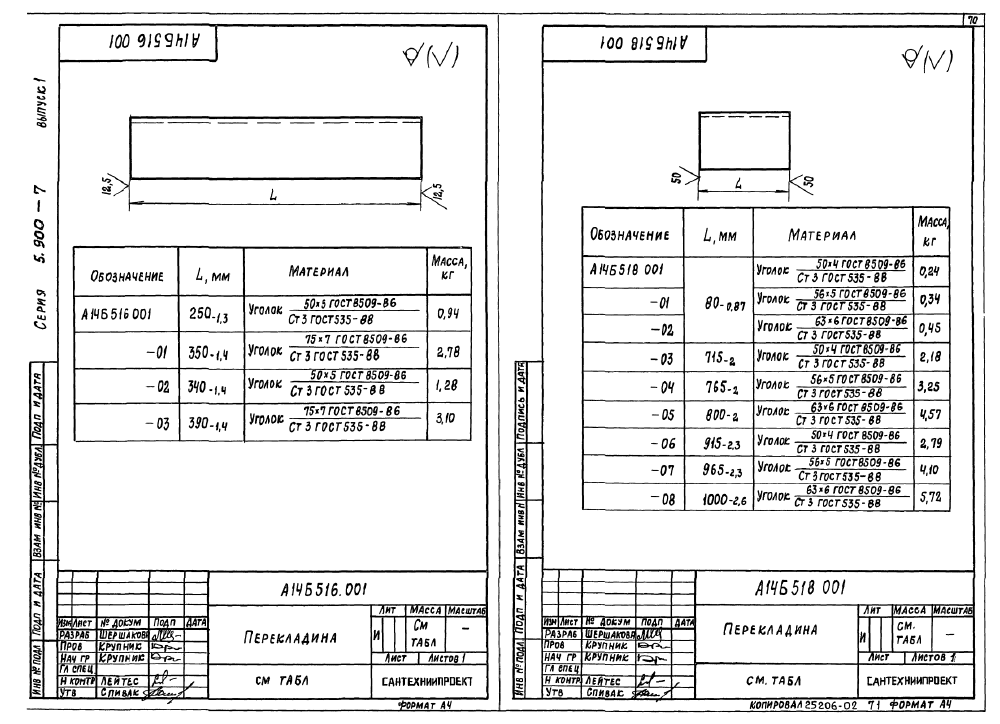 70
А14Б516 001
Серия 5.900-7 выпуск 1
12,5
L
12,5
Обозначение L, мм Материал Масса, кг
А14Б516 001 250-1,3 Уголок 50×5 ГОСТ 8509-86 / Ст 3 ГОСТ 535-88 0,94
-01 350-1,4 Уголок 75×7 ГОСТ 8509-86 / Ст 3 ГОСТ 535-88 2,78
-02 340-1,4 Уголок 50×5 ГОСТ 8509-86 / Ст 3 ГОСТ 535-88 1,28
-03 390-1,4 Уголок 75×7 ГОСТ 8509-86 / Ст 3 ГОСТ 535-88 3,10
Инв № подл Подп и дата Взам инв № Инв № дубл Подп и дата
А14Б516.001
Изм Лист № докум Подп Дата
Разраб Шершакова
Пров Крупник
Нач гр Крупник
Гл спец
Н контр Лейтес
Утв Спивак
Перекладина
Лит Масса Масштаб
И См табл –
Лист Листов 1
см табл
Сантехниипроект
Формат А4
А14Б518 001
50
L
50
Обозначение L, мм Материал Масса, кг
А14Б518 001 80-0,87 Уголок 50×4 ГОСТ 8509-86 / Ст 3 ГОСТ 535-88 0,24
-01 Уголок 56×5 ГОСТ 8509-86 / Ст 3 ГОСТ 535-88 0,34
-02 Уголок 63×6 ГОСТ 8509-86 / Ст 3 ГОСТ 535-88 0,45
-03 715-2 Уголок 50×4 ГОСТ 8509-86 / Ст 3 ГОСТ 535-88 2,18
-04 765-2 Уголок 56×5 ГОСТ 8509-86 / Ст 3 ГОСТ 535-88 3,25
-05 800-2 Уголок 63×6 ГОСТ 8509-86 / Ст 3 ГОСТ 535-88 4,57
-06 915-2,3 Уголок 50×4 ГОСТ 8509-86 / Ст 3 ГОСТ 535-88 2,79
-07 965-2,3 Уголок 56×5 ГОСТ 8509-86 / Ст 3 ГОСТ 535-88 4,10
-08 1000-2,6 Уголок 63×6 ГОСТ 8509-86 / Ст 3 ГОСТ 535-88 5,72
Инв № подл Подп и дата Взам инв № Инв № дубл Подпись и дата
А14Б518 001
Изм Лист № докум Подп Дата
Разраб Шершакова
Пров Крупник
Нач гр Крупник
Гл спец
Н контр Лейтес
Утв Спивак
Перекладина
Лит Масса Масштаб
И См. табл –
Лист Листов 1
см. табл
Сантехниипроект
Копировал 25206-02 71 Формат А4